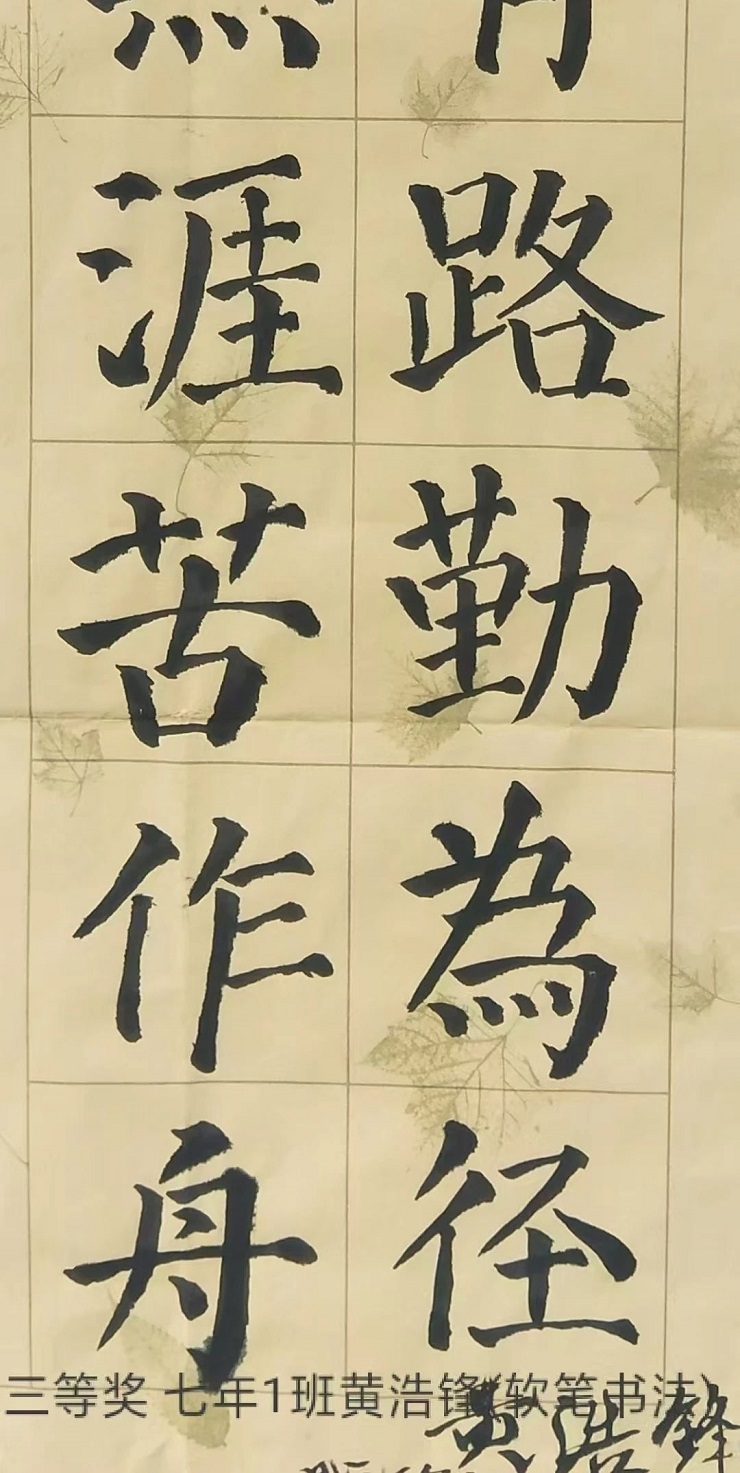 有路勤為径
無涯苦作舟
黄浩锋
三等奖 七年1班黄浩锋(软笔书法)